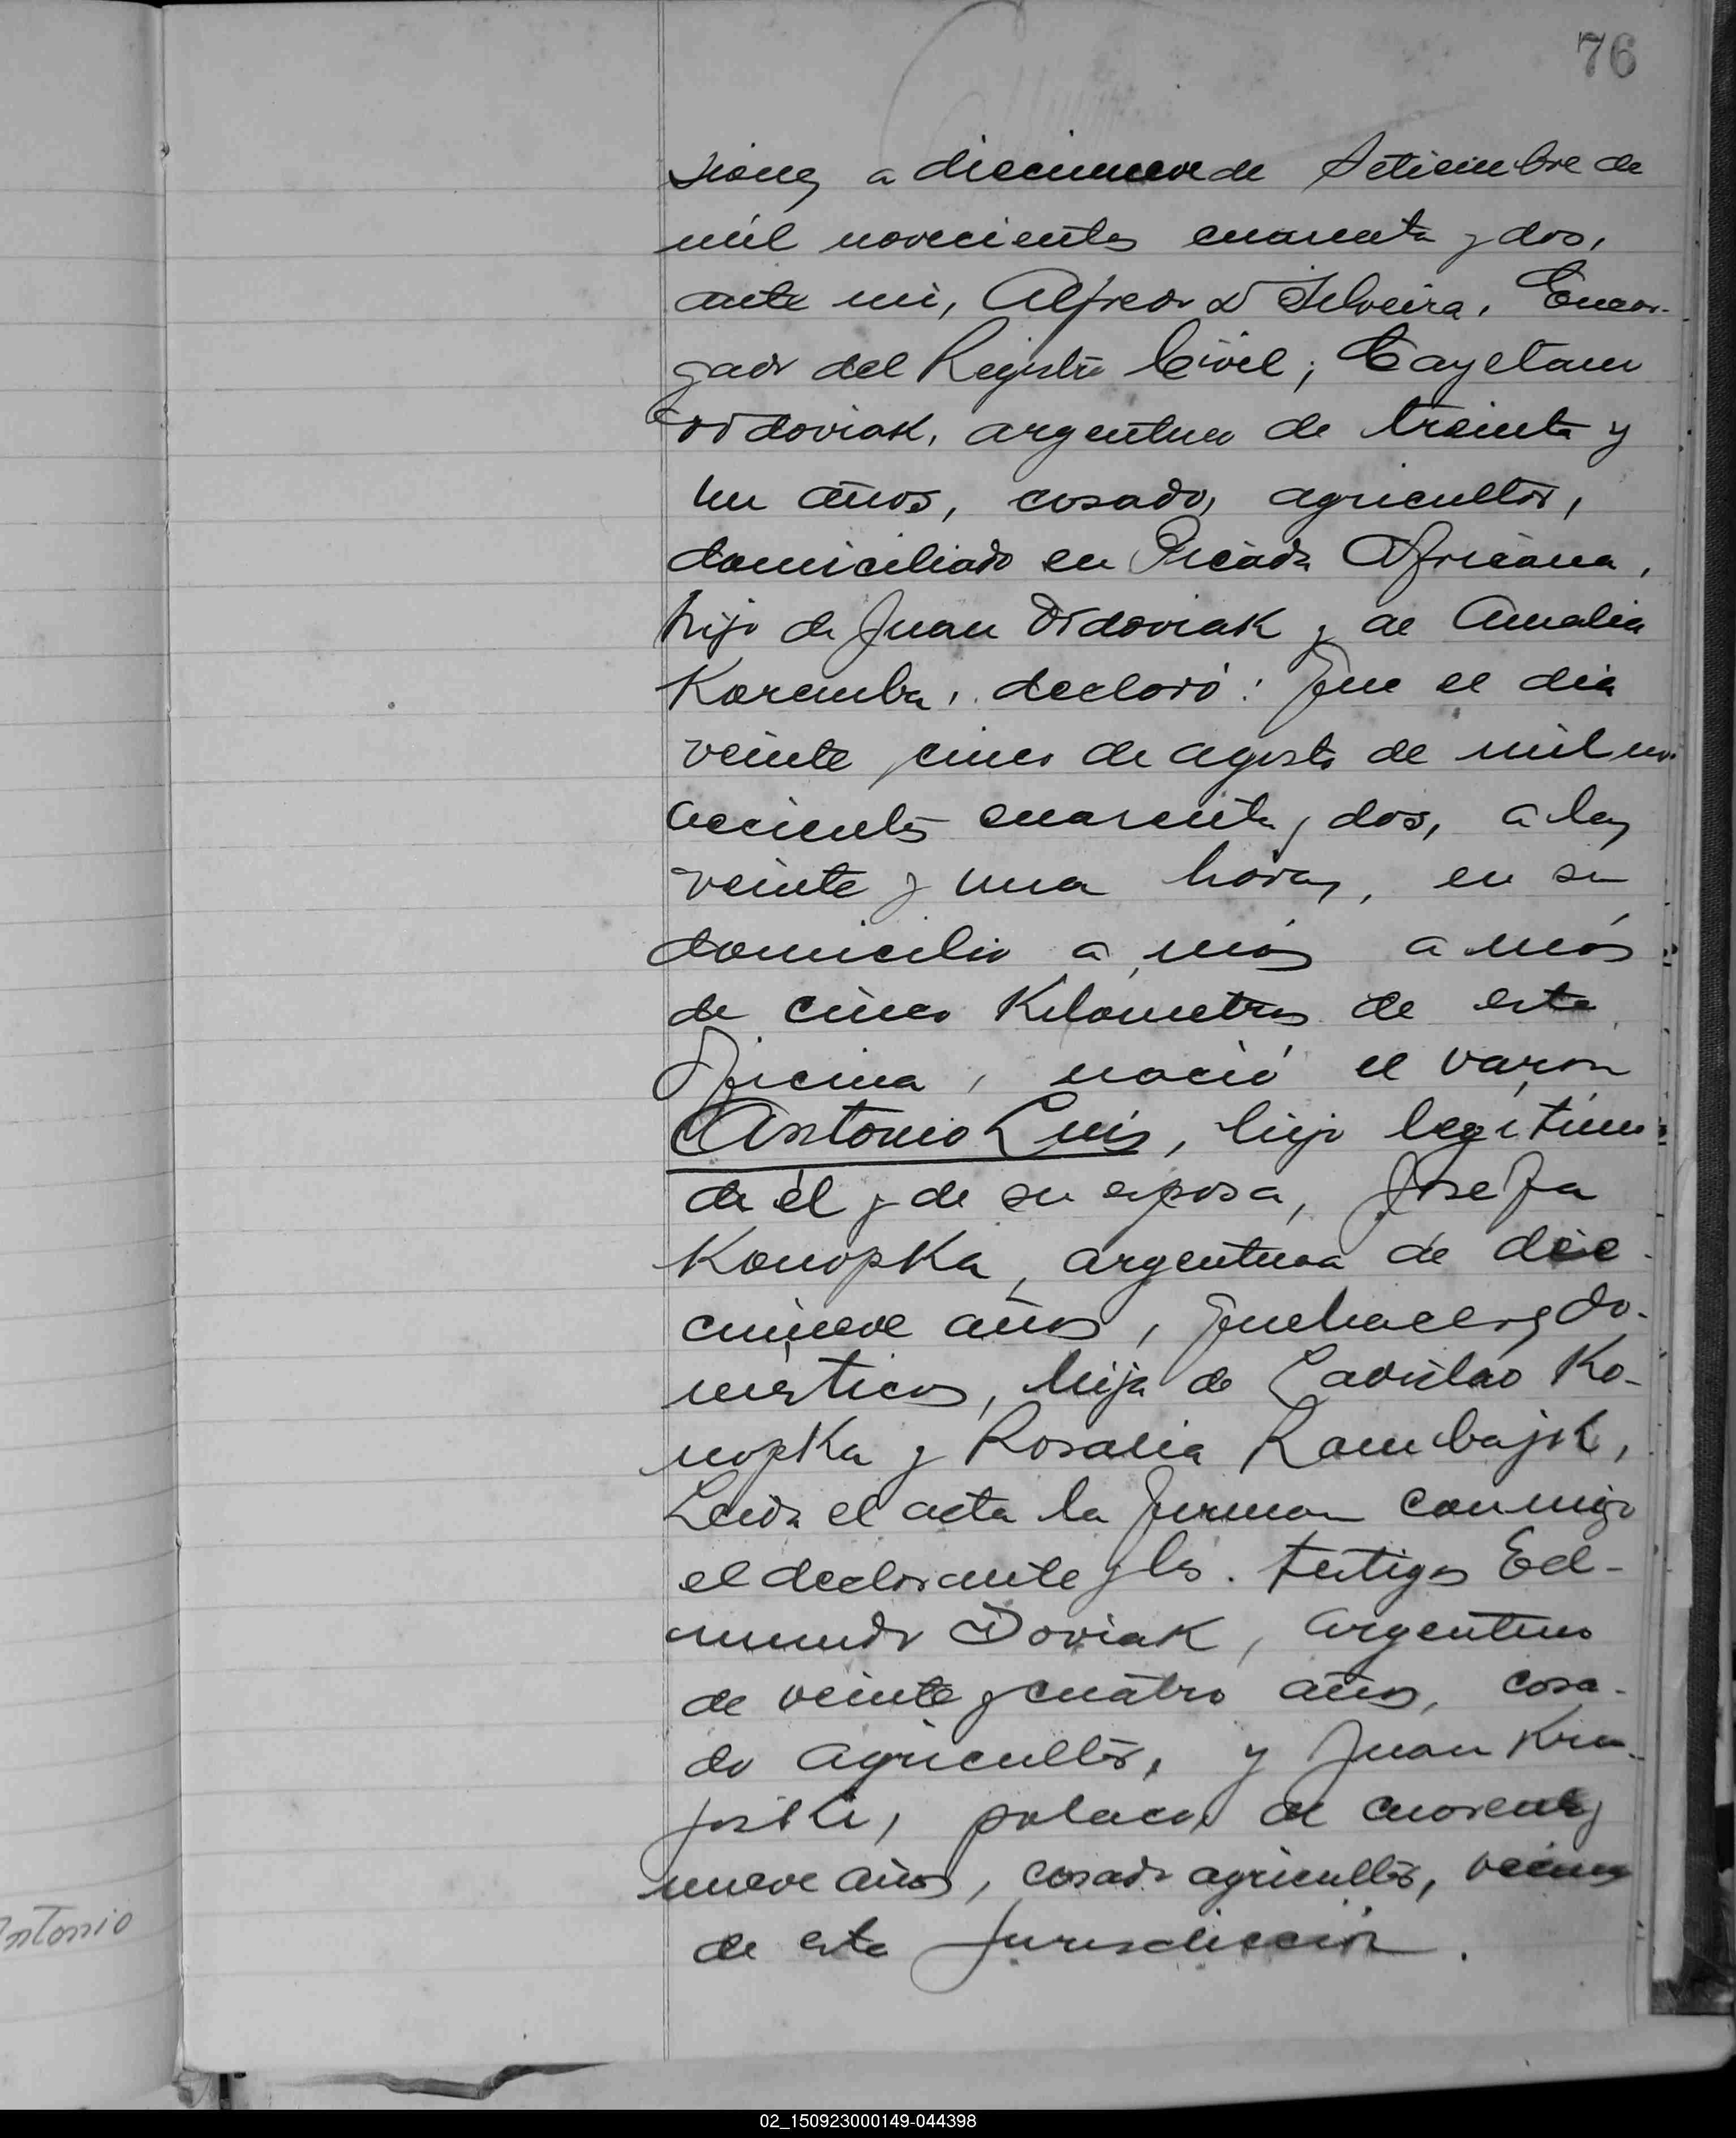 76
siones a diecinueve de Setiembre de
mil novecientos cuarenta y dos,
ante mi, Alfredo D Silveira, Encar-
gado del Registro Civil; Cayetano
Vdoviak, argentino de treinta y
un años, casado, agricultor,
domiciliado en Picada Africana,
hijo de Juan Vdoviak y de Amalia
Koremba, declaró: Que el dia
veinte cinco de agosto de mil no-
vecientos cuarenta y dos, a las
veinte y una horas, en su
domicilio a más a más
de cinco Kilometros de esta
Oficina, nació el varón
Antonio Luis, hijo legitimo
de él y de su esposa, Josefa
Konopka, argentina de diec
cinueve años, quehaceres do-
mesticos, hija de Ladislao Ko-
nopka y Rosalia Rambajk,
Leida el acta la firman conmigo
el declarante y los. testigos Ed-
mundo Doviak, argentino
de veinte y cuatro años, casa-
do agricultor, y Juan Kra-
joski, polaco, de cuarenta y
nueve años, casado agricultor, vecinos
de esta Jurisdiccion.
Antonio
02_150923000149-044398